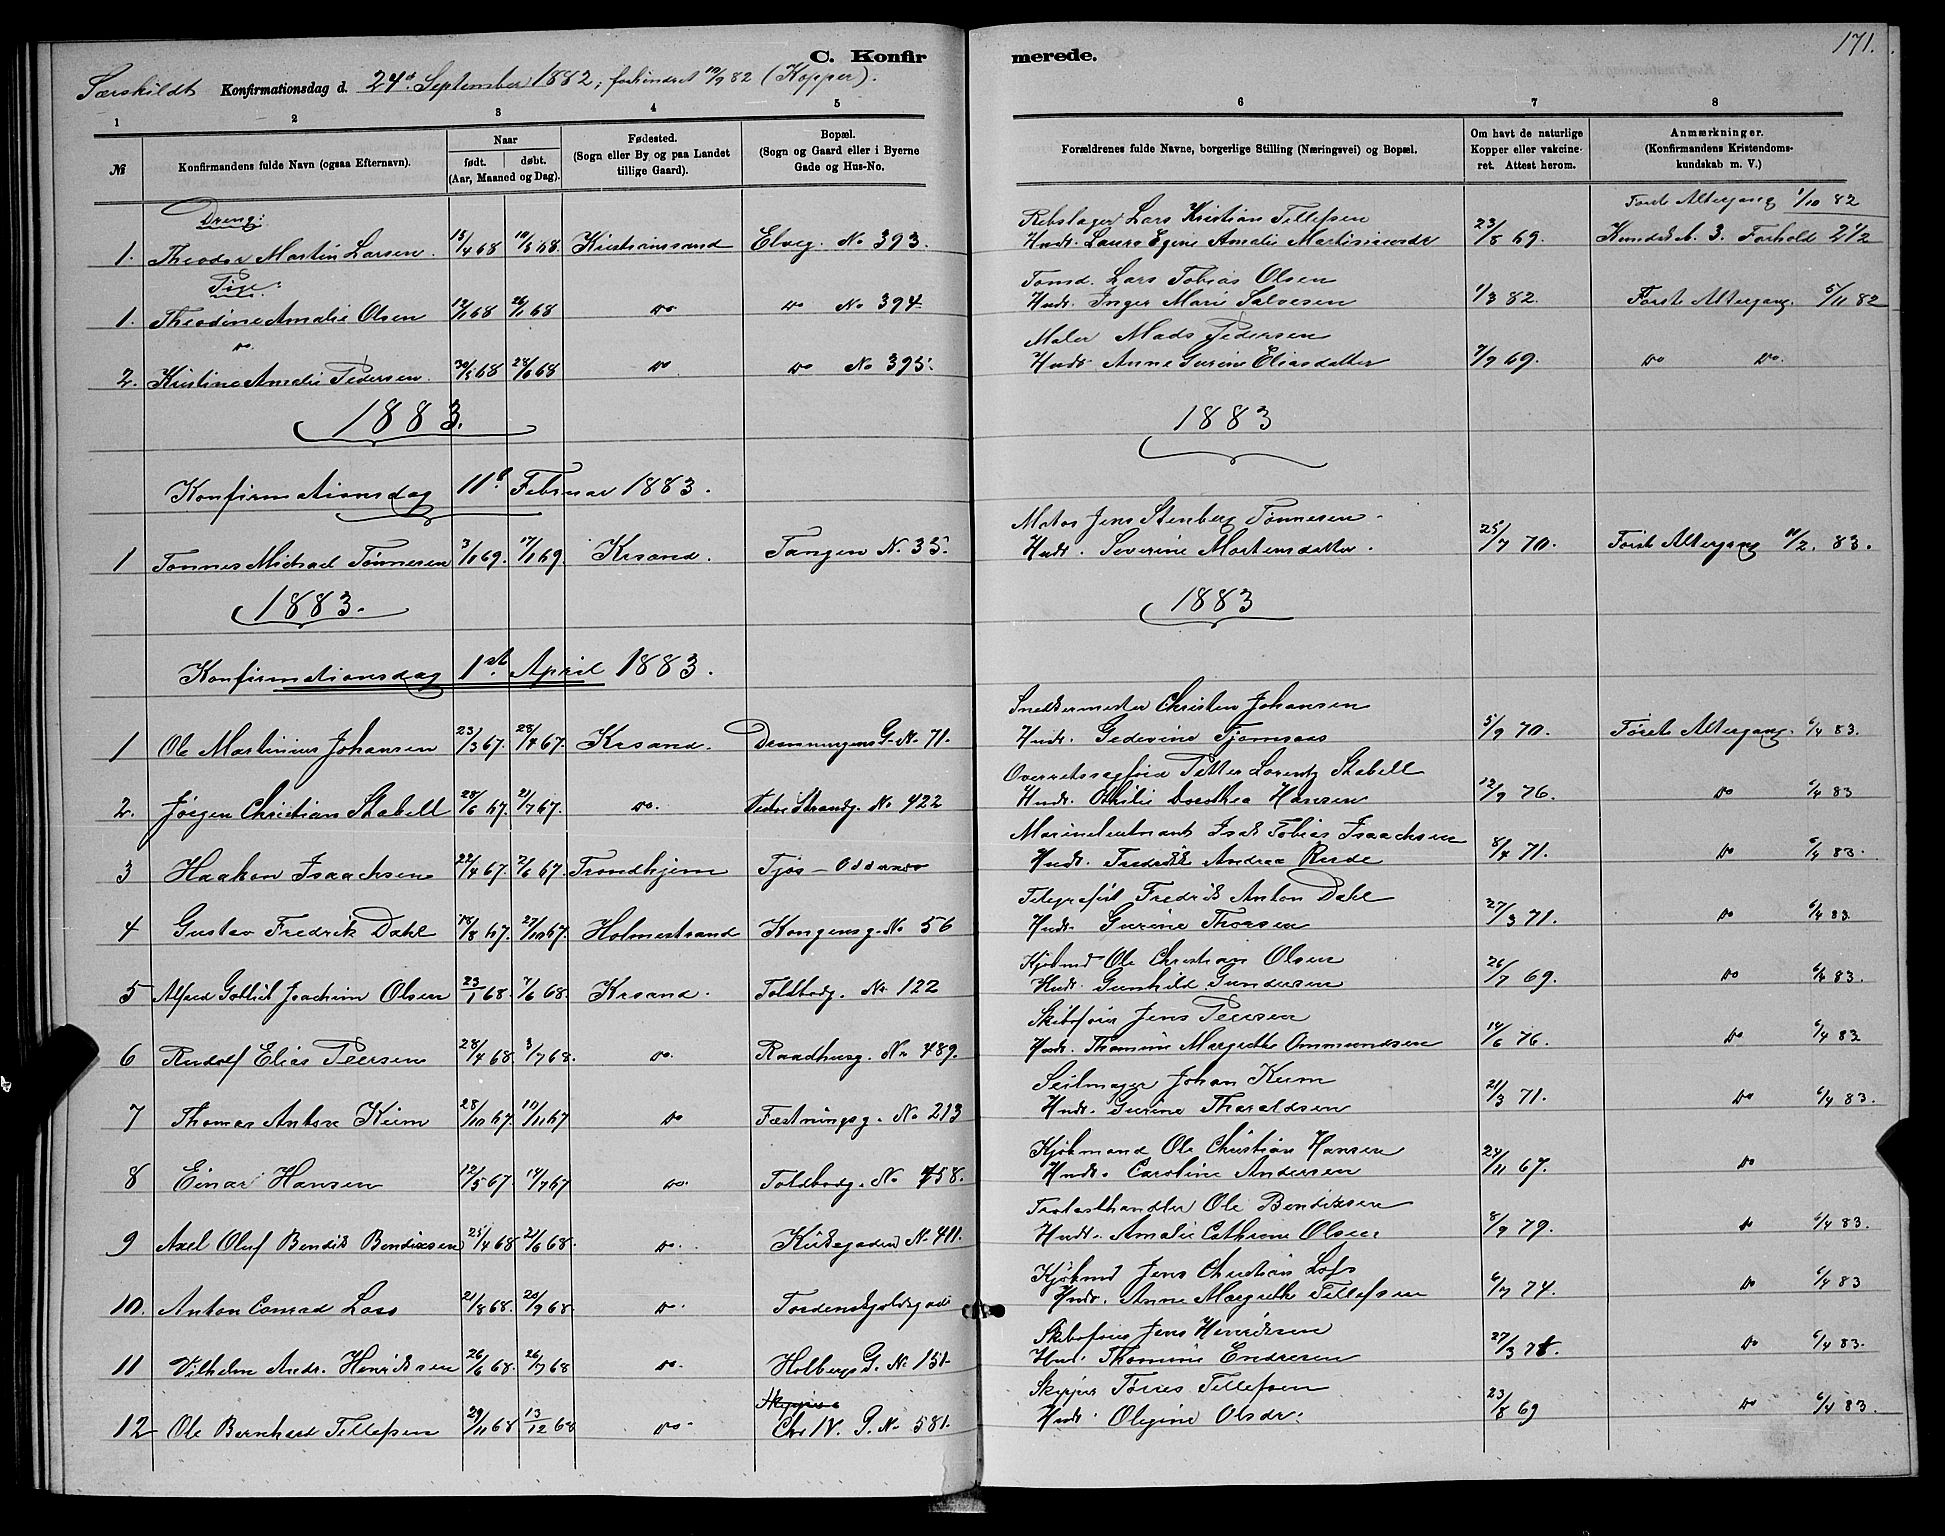 171.
C. Konfirmerede.
Særskildt Konfirmationsdag d. 24d September 1882, forhindret 10/9 82 (Kopper).
1 2 3 4 5 6 7 8
№
Konfirmandens fulde Navn (ogsaa Efternavn).
Naar
født. døbt.
(Aar, Maaned og Dag).
Fødested.
(Sogn eller By og paa Landet
tillige Gaard).
Bopæl.
(Sogn og Gaard eller i Byerne
Gade og Hus-No.
Forældrenes fulde Navne, borgerlige Stilling (Næringsvei) og Bopæl.
Om havt de naturlige
Kopper eller vakcine-
ret. Attest herom.
Anmærkninger.
(Konfirmandens Kristendoms-
kundskab m. V.)
Dreng:
Rebslager Lars Kristian Tellefsen
Først Altergang 1/10 82
1. Theodor Martin Larsen. 13/4 68 10/5 68. Kristianssand Elveg. No 393. Hustr. Laura Egine Amalie 23/8 69. Kundsk. 3. Forhold 2 1/2
Pige:
Lars Tobias Olsen
1. Theodine Amalie Olsen 12/1 68 26/1 68 do do No 394. Hustr. Inger Marie Salvesen 1/3 82. Første Altergang. 5/11 82
do
Maler Mads Pedersen
2. Kristine Amalie Pedersen. 68 68 do do No 395. Hustr. Anne Gurine Eliasdatter 7/9 69. do do.
1883. 1883
Konfirmationsdag 11te Februar 1883.
Matros Jens Stenberg Tønnesen.
1 Tønnes Michael Tønnesen 3/1 69. 17/1 69. Krsand. Tangen N. 35. Hustr. Severine Mortensdatter. 25/7 70. Først Altergang 11/2. 83.
1883. 1883
Konfirmationsdag 1st. April 1883.
Snedkermester Christen Johansen
1 Ole Martinius Johansen 23/3 67. 28/4 67. Krsand. Dronningens G. N. 71. Hustr. Gedevine Tjomsaas 5/9 70. Først Altergang. 6/4 83.
Overretssagfører Petter Lorentz Stabell
2. Jørgen Christian Stabell 28/6 67. 21/7 67. do. Vestre Strandg. No 422 Hustr. Othilie Dorothea Hansen 12/9 76. do 6/4 83
Marinelieutnant Isak Tobias Isaachsen
3 Haakon Isaachsen 22/4 67. 2/6 67. Trondhjem Tjos - Oddernes Hustr. Fredrikke Andrea Rude 8/4 71. do 6/4 83.
Telegrafist Fredrik Anton Dahl
4 Gustav Fredrik Dahl 18/8 67. 27/10 67. Holmestrand Kongensg. No 56 Hustr. Gurine Thorsen 27/3 71. do 6/4 83
Kjøbmd Ole Christian Olsen
5 Alfred Gotlieb Joachim Olsen 23/1 68. 7/6 68. Krsand. Toldbodg. Nr 122 Hustr. Gunhild Gundersen 26/7 69. do 6/4 83.
Skibsfører Jens Peersen
6 Rudolf Elias Peersen 28/4 68. 3/7 68. do. Raadhusg. Nr 489. Hustr. Thomine Margrethe Ommundsen 14/6 76. do 6/4 83
Seilmager Johan Keim
7 Thomas Anton Keim 28/10 67. 10/11 67 do Fæstningsg. No 213 Hustr. Gurine Tharaldsen 21/3 71. do 6/4 83.
Kjøbmand Ole Christian Hansen
8 Einar Hansen 12/5 67 14/7 67 do. Toldbodg. No 158. Hustr. Caroline Andersen 24/11 67. do
Trælasthandler Ole Bendixsen
9 Axel Oluf Bendix Bendixsen 25/4 68 21/6 68. do. Kirkegaden N. 411. Hustr. Amalie Cathrine Olsen 8/9 79. do 6/4 83.
Kjøbmd Jens Christian Loss
10. Anton Conrad Loss 21/8 68. 20/9 68. do. Tordenskjoldsgade Hustr. Anne Margrethe Tellefsen 6/7 74. do 6/4 83
Skibsfører Jens Henriksen
11 Vilhelm Andr. Henriksen 26/6 68. 26/7 68 do. Holbergs G. No 151. Hustr. Thomine Endresen 27/3 78. do 6/4 83.
Skipper Tørres Tellefsen
12 Ole Bernhard Tellefsen 29/11 68 13/12 68 do. Chr IV. G. No 581. Hustr. Olegine Olsdr. 23/8 69 do 6/4 83.